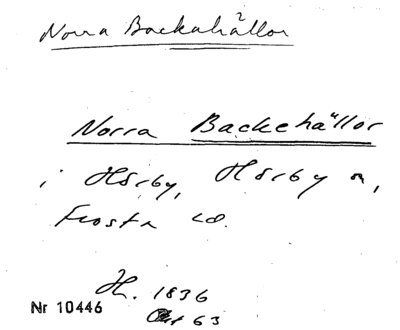 Norra Backahällor
Norra Backehällor
i Hörby, Hörby sn,
Frosta hd.
H. 1836
Akt 63
Nr 10446